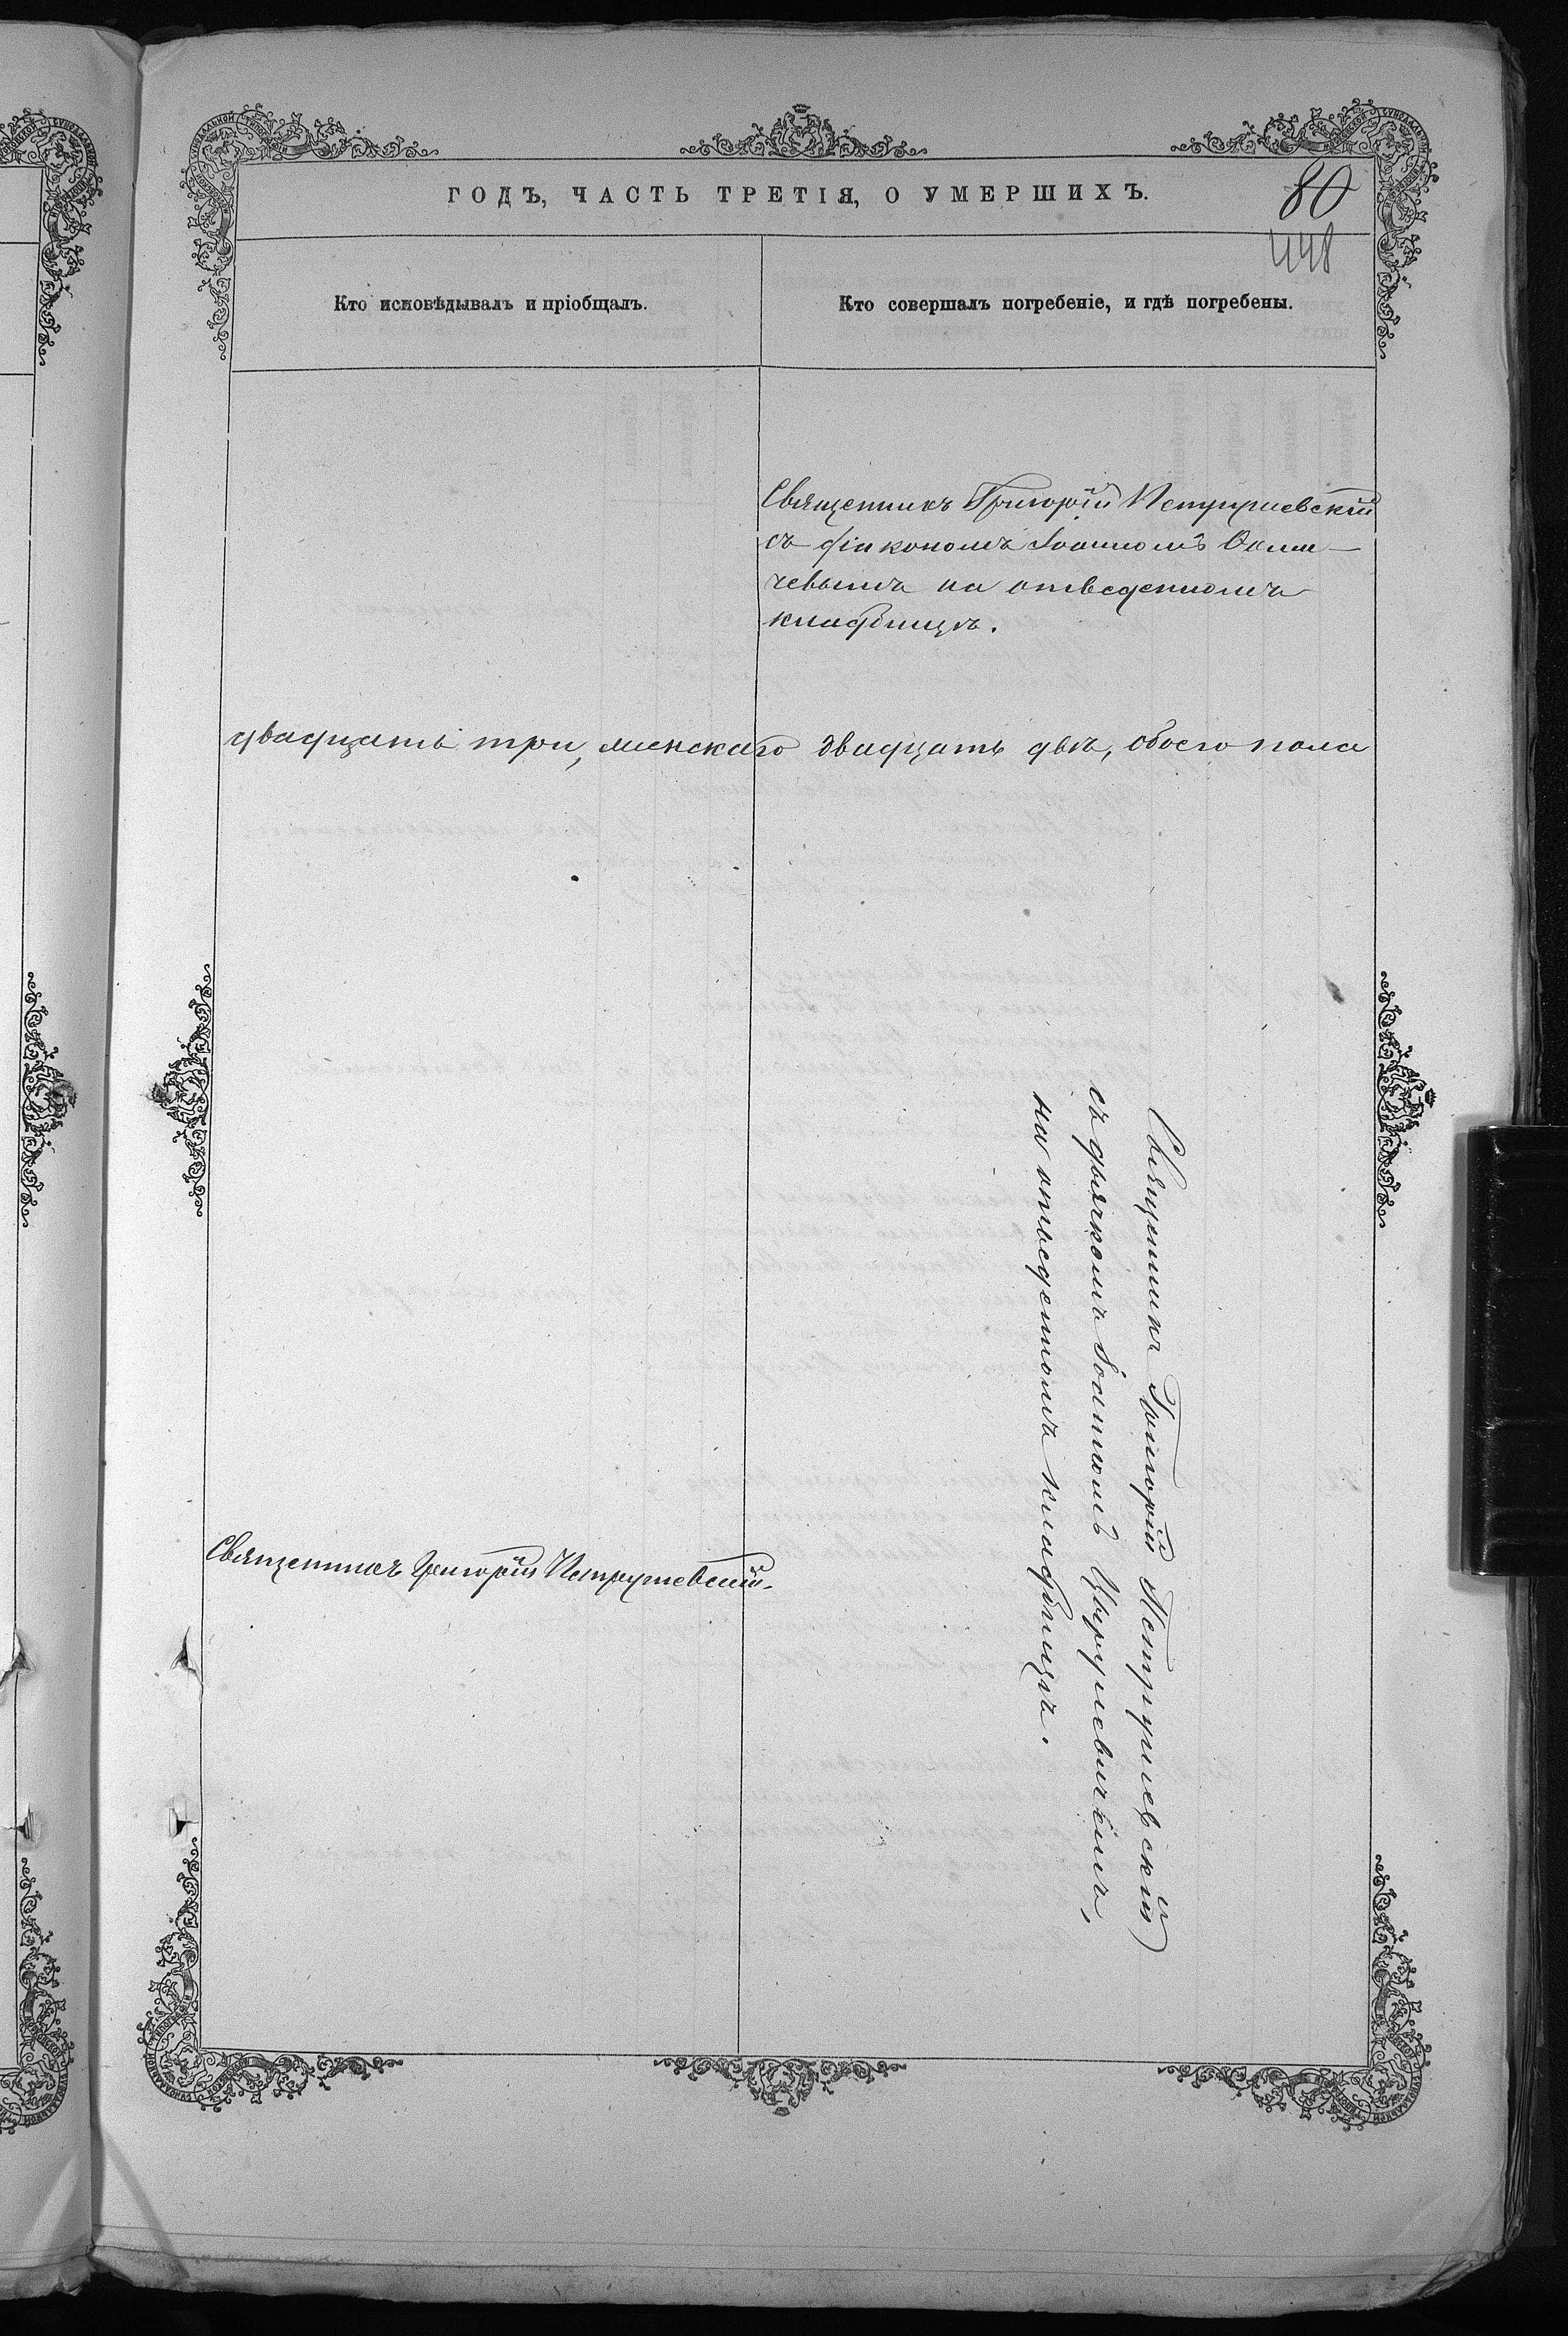 ГОДЪ, ЧАСТЬ ТРЕТІЯ, О УМЕРШИХЪ.
80
448
Кто исповѣдывалъ и пріобщалъ.
Кто совершалъ погребеніе, и гдѣ погребены.
Священникъ Григорій Петрушевскій
съ діакономъ Іоанномъ
чевымъ на отведенномъ
кладбищѣ.
двадцать три, женскаго двадцать двѣ, обоего пола
Священникъ Григорій Петрушевскій
съ дьячкомъ Іоанномъ Цырулевичемъ,
на отведенномъ кладбищѣ.
Священникъ Григорій Петрушевскій.